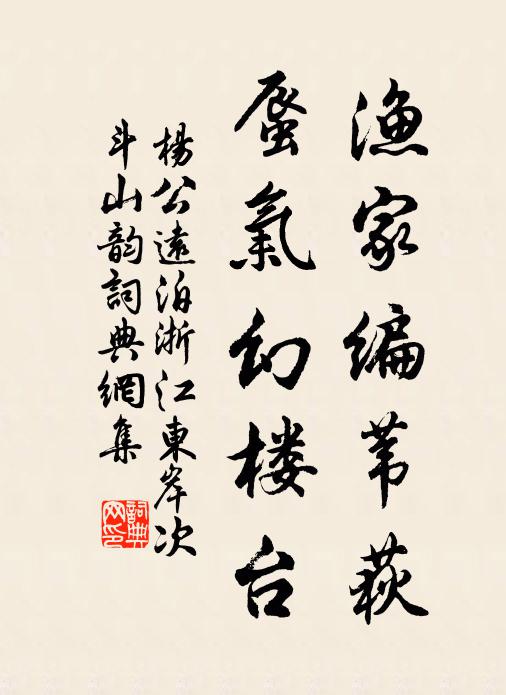 渔家编苇萩
蜃氣幻楼台
楊公遠泊浙江東岸次
斗山韵詞典網集
詞典
网印